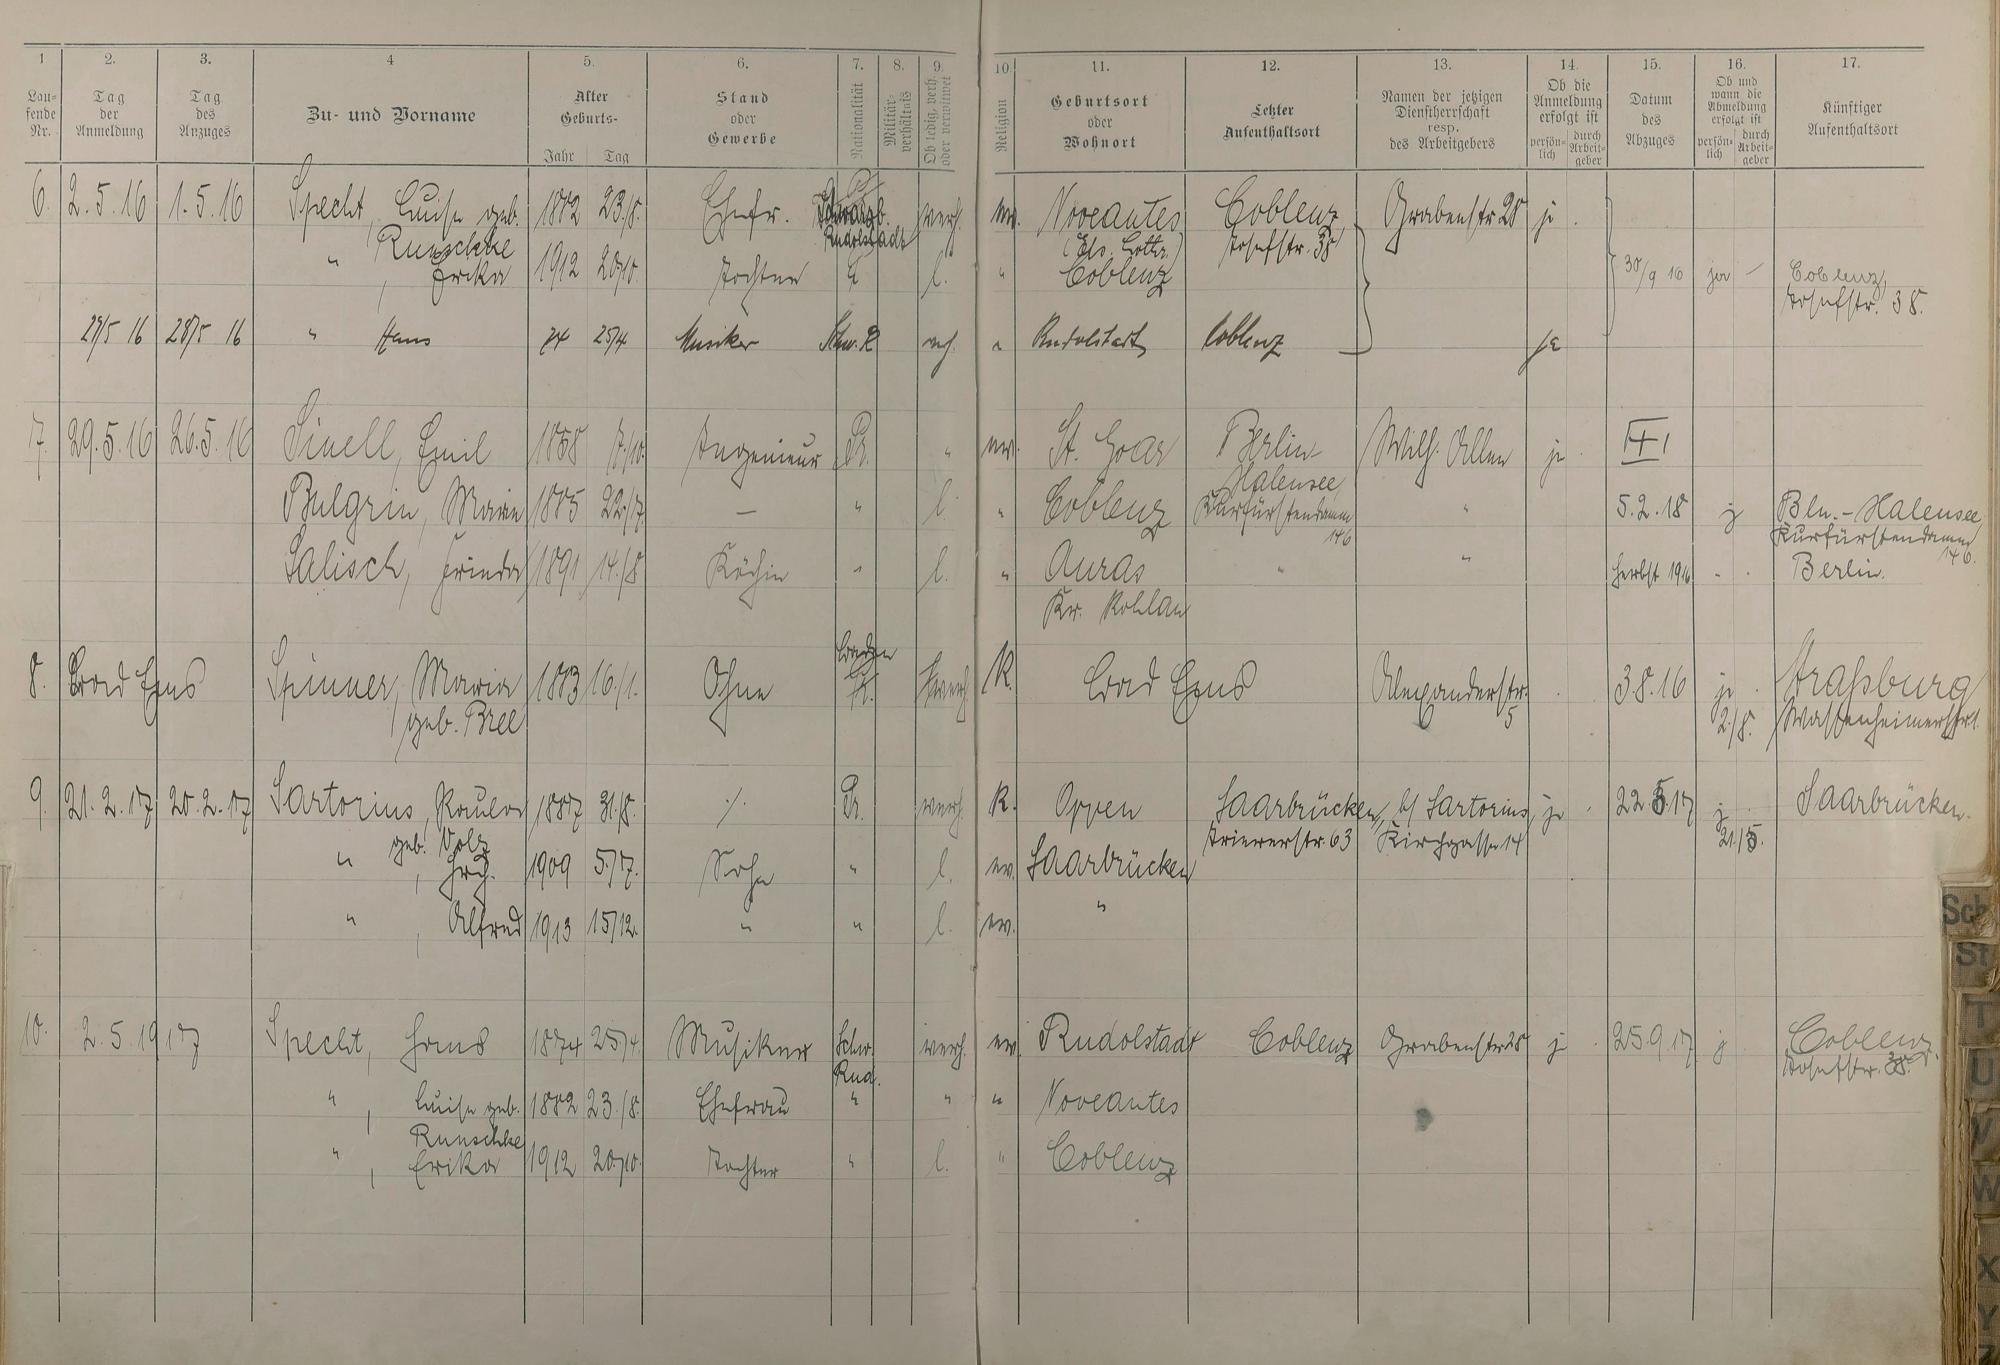 1 2. 3. 4 5. 6. 7. 8. 9. 10. 11. 12. 13. 14. 15. 16. 17.
Lau-
fende
Nr.
Tag
der
Anmeldung
Tag
des
Anzuges
Zu- und Vorname
Alter
Geburts-
Jahr Tag
Stand
oder
Gewerbe
Nationalität
Militär-
verhältnis
Ob ledig, verh.
oder verwitwet
Religion
Geburtsort
oder
Wohnort
Letzter
Aufenthaltsort
Namen der jetzigen
Dienstherrschaft
resp.
des Arbeitgebers
Ob die
Anmeldung
erfolgt ist
persön-
lich
durch
Arbeit-
geber
Datum
des
Abzuges
Ob und
wann die
Abmeldung
erfolgt ist
persön-
lich
durch
Arbeit-
geber
Künftiger
Aufenthaltsort
6. 2.5.16 1.5.16 Specht, Luise geb. 1882 23./8. Ehefr. Schwarzb. verh. ev. Noveantes Coblenz Grabenstr 28 j.
Runschke Rudolstadt (Els. Lothr.) Josefstr. 38
" , Erika 1912 20/10. Tochter " l. " Coblenz 30/9 16 ja – Coblenz,
Josefstr. 38.
29/5 16 28/5 16 " Hans 74 25/4 Musiker Schw. R vh. " Rudolstadt Coblenz ja
7. 29.5.16 26.5.16 Sinell, Emil 1868 7./10. Ingenieur Pr. " ev. St. Goar Berlin- Wilh. Allee j.
Halensee,
Bulgrin, Marie 1885 22./7. — " l. " Coblenz Kurfürstendamm " 5.2.18 j Bln.-Halensee
146 Kurfürstendamm
146.
Salisch, Frieda 1891 14./8 Köchin " l. " Auras " " Herbst 1916 " . Berlin.
Kr. Wohlau
Baden
8. Bad Ems Spinner, Maria 1883 16./1. Ohne Pr. verh. K. Bad Ems Alexanderstr. 3.8.16 j. Straßburg
geb. Bree 5 2./8.
9. 21.2.17 20.2.17 Sartorius, Paula 1887 31./8. ./. Pr. verh. K. Oppen Saarbrücken, b/ Sartorius, j. 22.5.17 j. Saarbrücken.
geb. Volz Triererstr. 63 Kirchgasse 14 21./5.
" , 1909 5./7. Sohn " l. ev. Saarbrücken
" , Alfred 1913 15/12. " " l. ev. "
10. 2.5.1917 Specht, Hans 1874 25/4. Musiker Schw. verh. ev. Rudolstadt Coblenz Grabenstr 28 j. 25.9.17 j Coblenz.
Rud. Josefstr. 38.
" , Luise geb. 1882 23./8. Ehefrau " " " Noveantes
Runschke
" , Erika 1912 20./10. Tochter " l. " Coblenz
Sch
St
T
U
V
W
X
Y
Z